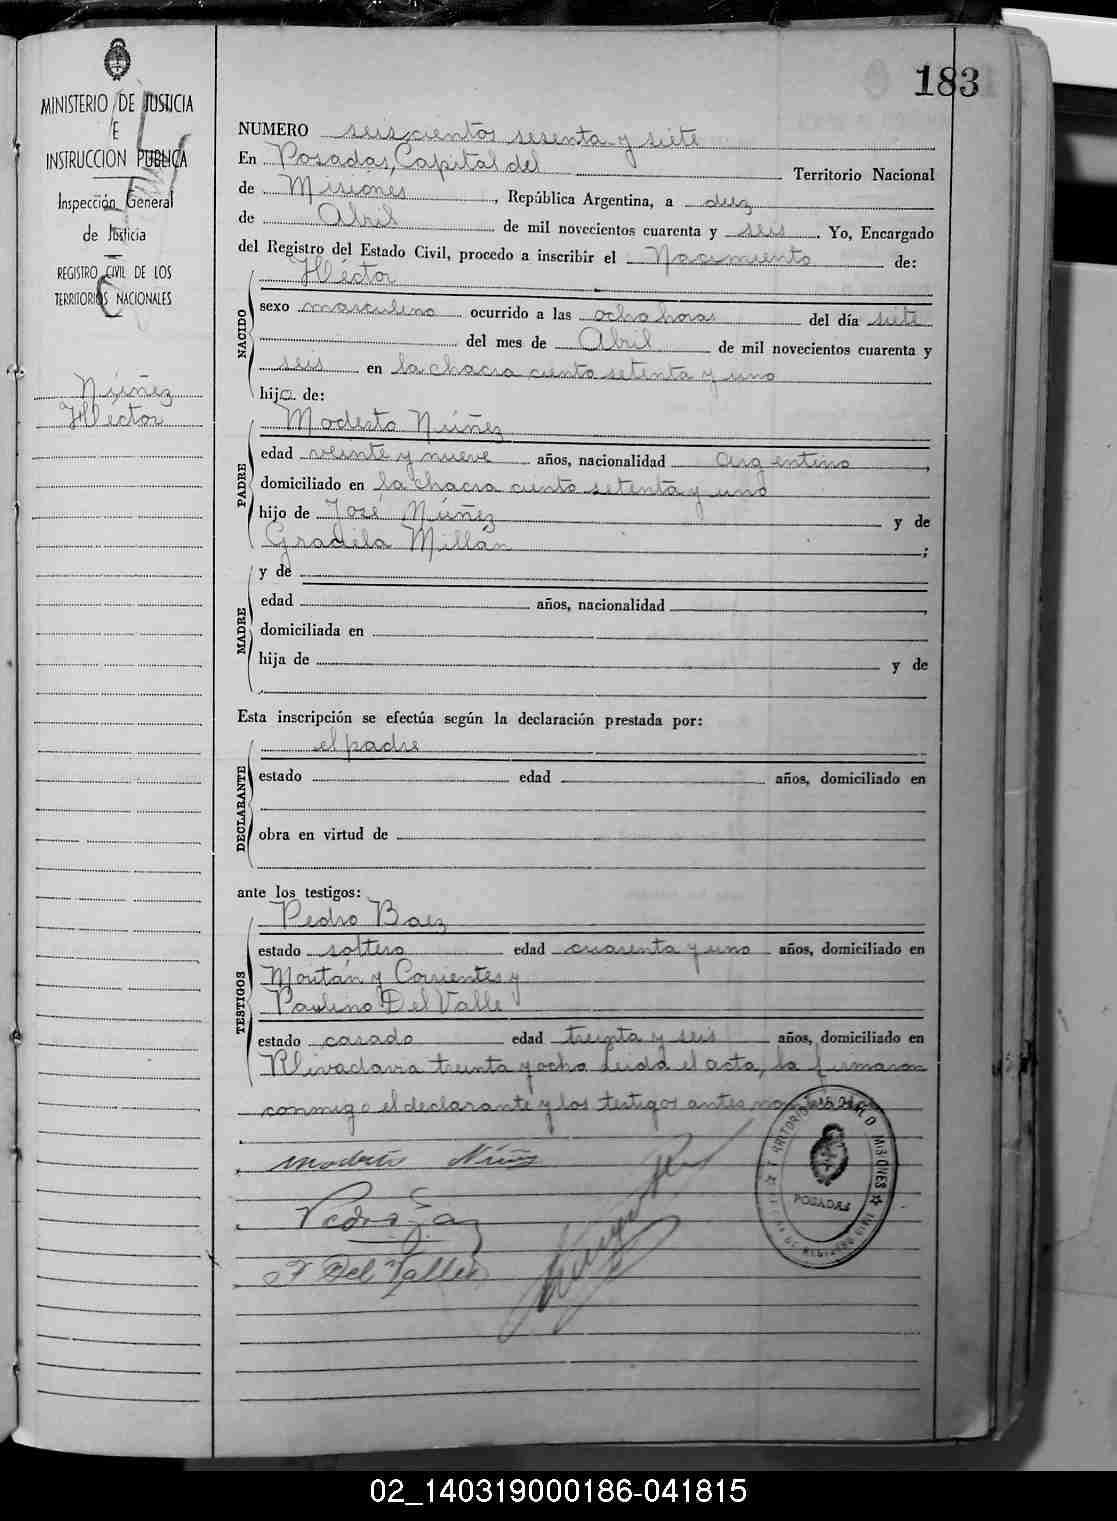 183
MINISTERIO DE JUSTICIA
E
INSTRUCCION PUBLICA
Inspección General
de Justicia
REGISTRO CIVIL DE LOS
TERRITORIOS NACIONALES
Núñez
Héctor
NUMERO seiscientos sesenta y siete
En Posadas, Capital del Territorio Nacional
de Misiones, República Argentina, a diez
de Abril de mil novecientos cuarenta y seis. Yo, Encargado
del Registro del Estado Civil, procedo a inscribir el Nacimiento de:
Héctor
NACIDO
sexo masculino ocurrido a las ocho horas del día siete
del mes de Abril de mil novecientos cuarenta y
seis en la chacra ciento setenta y uno
hijo de:
Modesto Núñez
PADRE
edad veinte y nueve años, nacionalidad argentino,
domiciliado en la chacra ciento setenta y uno
hijo de José Núñez y de
Gradila Millán;
y de
MADRE
edad años, nacionalidad
domiciliada en
hija de y de
Esta inscripción se efectúa según la declaración prestada por:
el padre
DECLARANTE
estado edad años, domiciliado en
obra en virtud de
ante los testigos:
Pedro Baez
TESTIGOS
estado soltero edad cuarenta y uno años, domiciliado en
Moritán y Corrientes y
Paulino Del Valle
estado casado edad treinta y seis años, domiciliado en
Rivadavia treinta y ocho Leida el acta, la firmaron
conmigo el declarante y los testigos antes nombrados
Modesto Núñez
Pedro Baez
P Del Valle
TERRITORIO NACIONAL D MISIONES
POSADAS
REGISTRO CIVIL
02_140319000186-041815